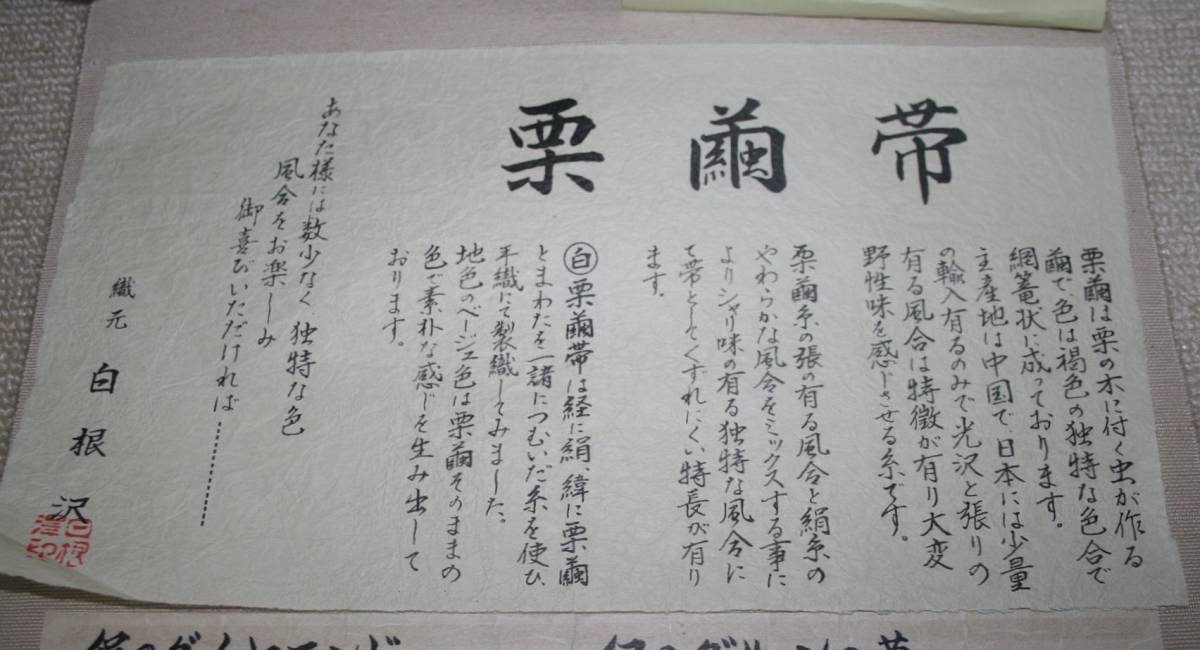 栗繭帯
栗繭は栗の木に付く虫が作る
繭で、色は褐色の独特な色合で
網篭状に成っております。
主産地は中国で、日本には少量
の輸入有るのみで光沢と張りの
有る風合は特徴が有り大変
野性味を感じさせる糸です。
栗繭糸の張の有る風合と絹糸の
やわらかな風合をミックスする事に
よりシャリ味の有る独特な風合に
て帯としてくずれにくい特長が有り
ます。
白栗繭帯は経に絹、緯に栗繭
とまわたを一諸につむいだ糸を使ひ、
手織にて製織してみました。
地色のベージュ色は栗繭そのままの
色で素朴な感じを生み出して
おります。
あなた様には数少なく、独特な色
風合をお楽しみ
御喜びいただければ………
織元 白根沢